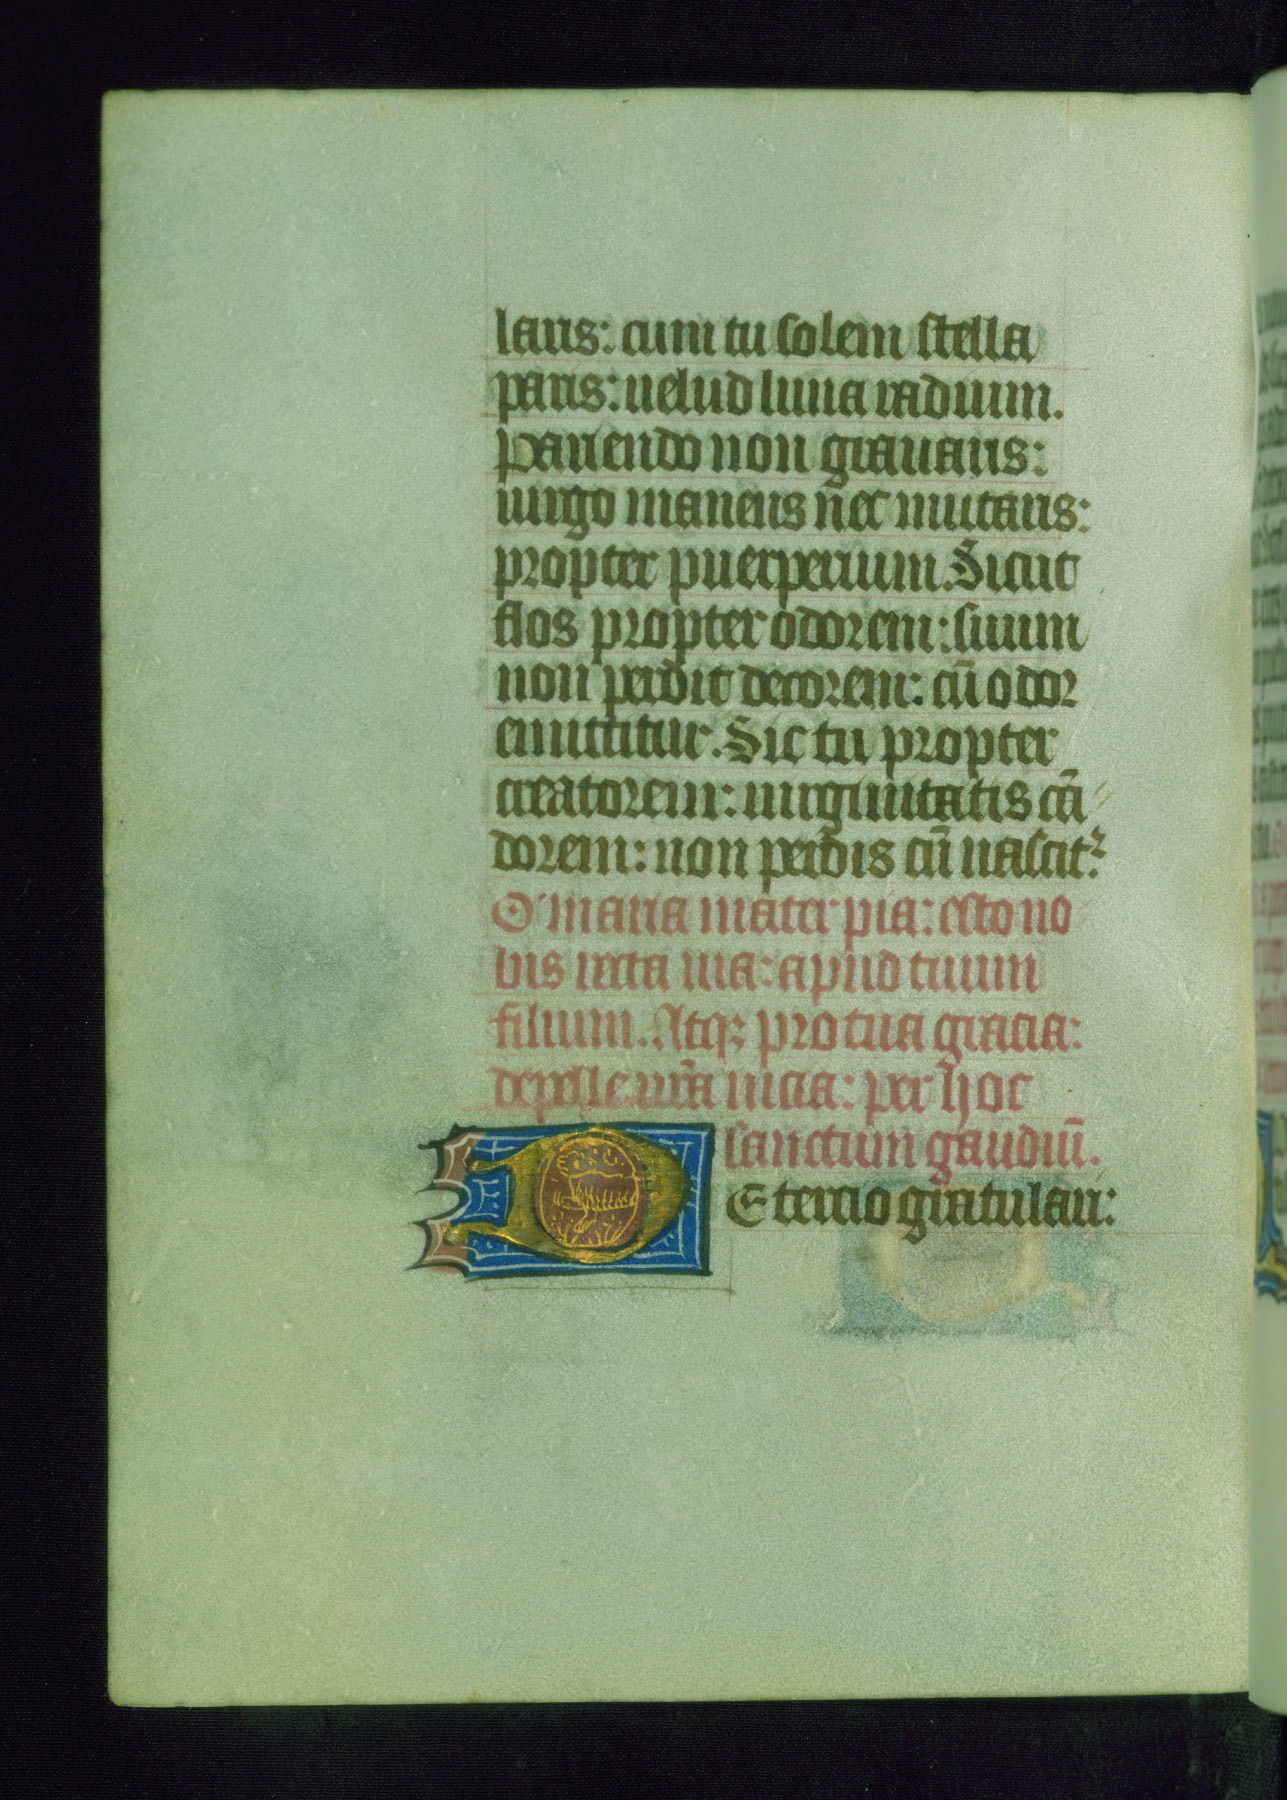 laris: cum tu solem stella
paris: uelud luna radium.
Pariendo non grauaris:
uirgo manens nec mutaris:
propter puerperium. Sicut
flos propter odorem: suum
non perdit decorem: cū odor
emittitur. Sic tu propter
creatorem: uirginitatis cā
dorem: non perdis cū nascit᷑.
O maria mater pia: esto no
bis recta uia: apud tuum
filium. Atqꝫ pro tua gracia:
depelle nr̄a uicia: per hoc
sanctum gaudiū.
DE tercio gratulari: